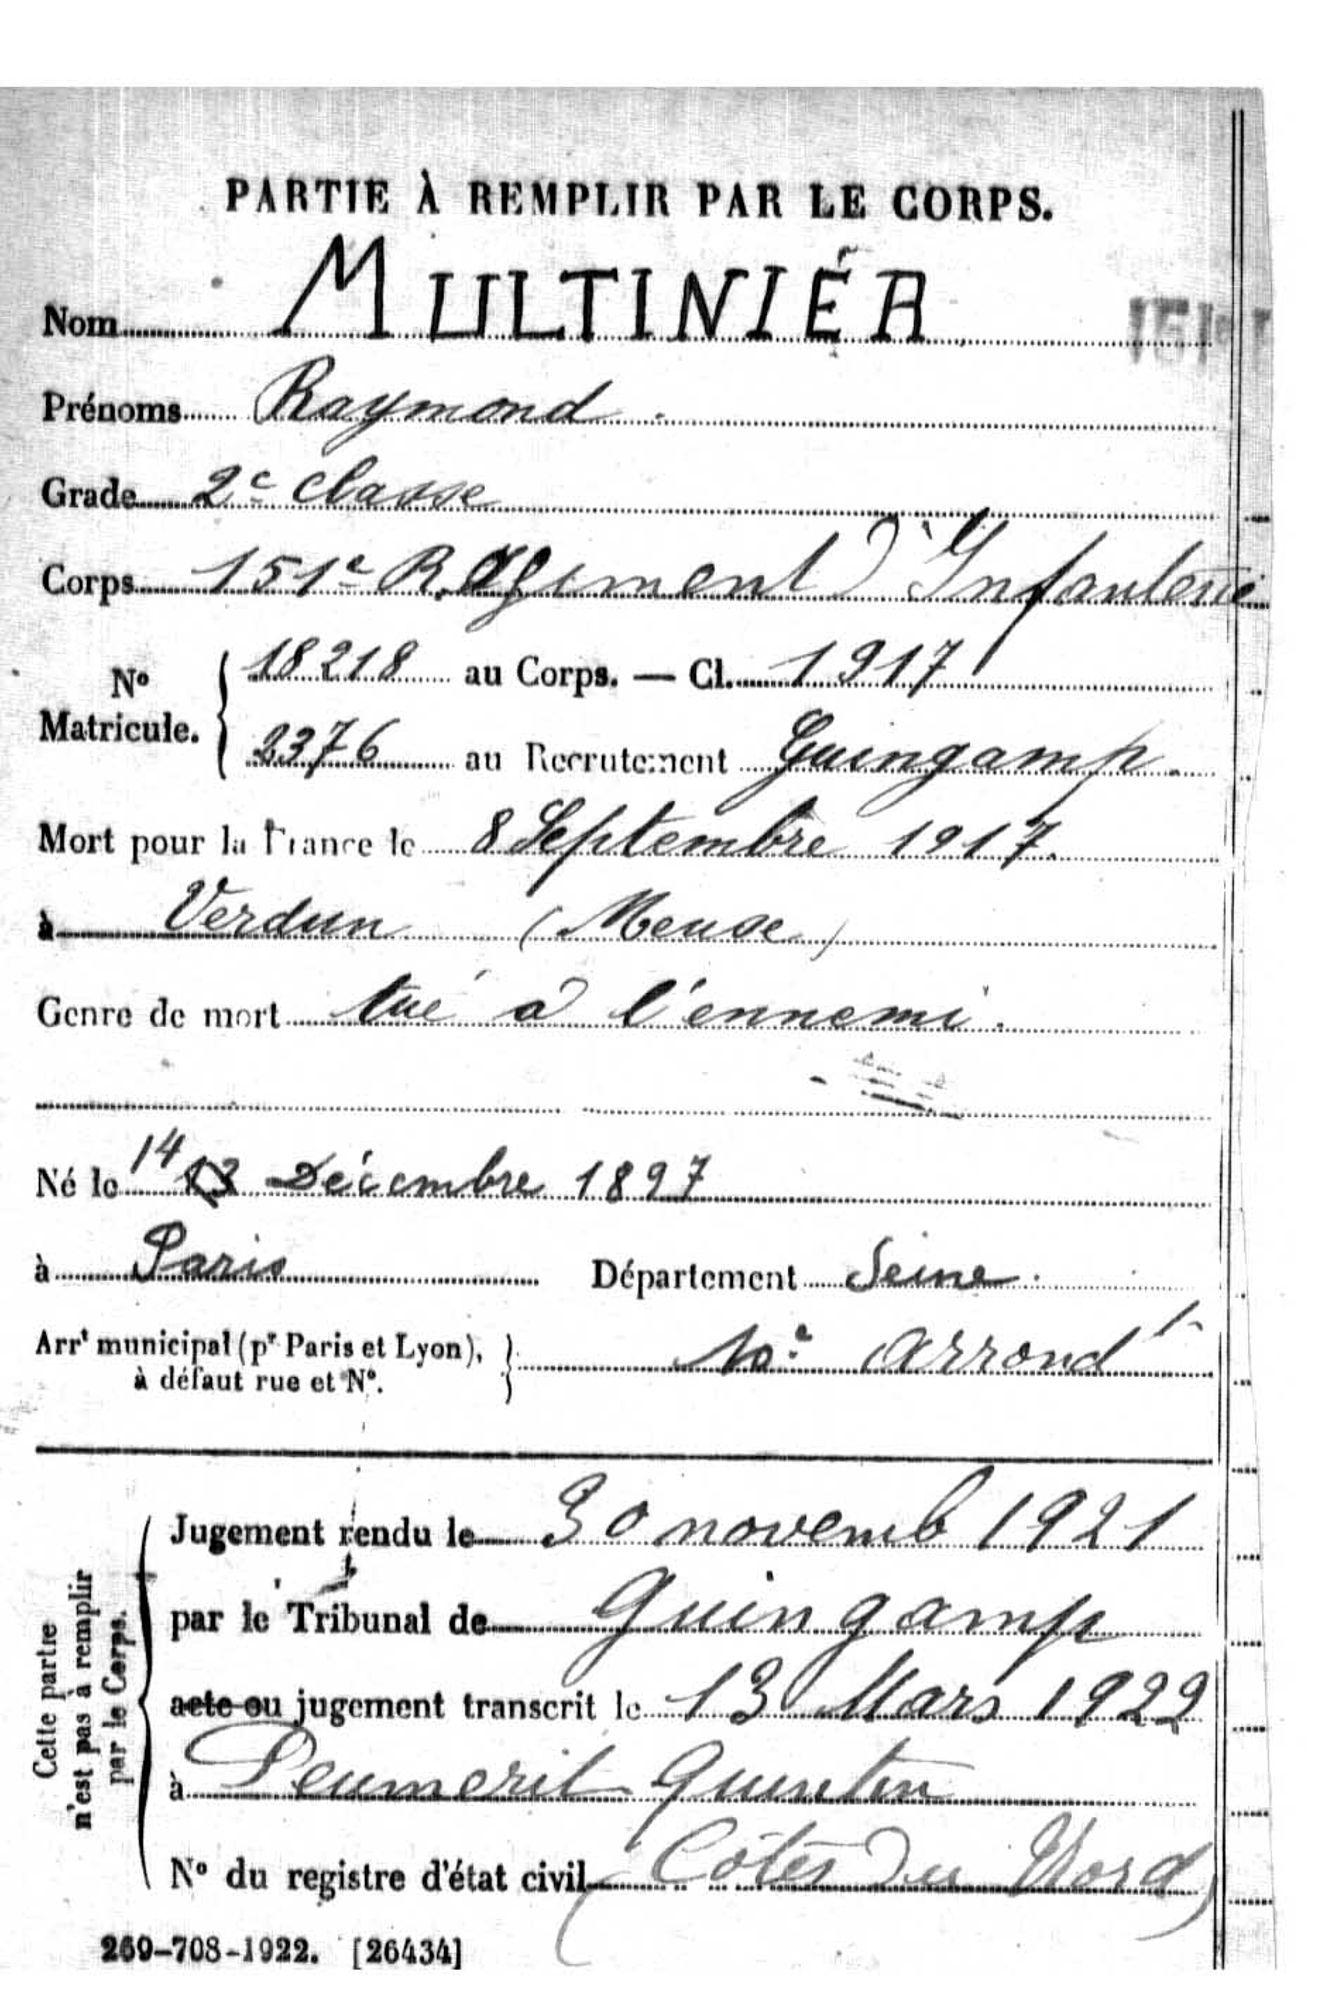 PARTIE À REMPLIR PAR LE CORPS.
Nom MULTINIÉR
151e
Prénoms Raymond.
Grade 2e classe
Corps 151e Régiment d'Infanterie
No Matricule. { 18218 au Corps. — Cl. 1917
2376 au Recrutement Guingamp.
Mort pour la France le 8 Septembre 1917.
à Verdun (Meuse)
Genre de mort tué à l'ennemi.
Né le 14 13 Décembre 1897
à Paris Département Seine.
Arrt municipal (pr Paris et Lyon), à défaut rue et No. } 10e arrondt
Cette partie n'est pas à remplir par le Corps.
Jugement rendu le 30 novemb 1921
par le Tribunal de Guingamp
acte ou jugement transcrit le 13 Mars 1922
à Peumerit Quintin
No du registre d'état civil (Côtes du Nord)
260-708-1922. [26434]